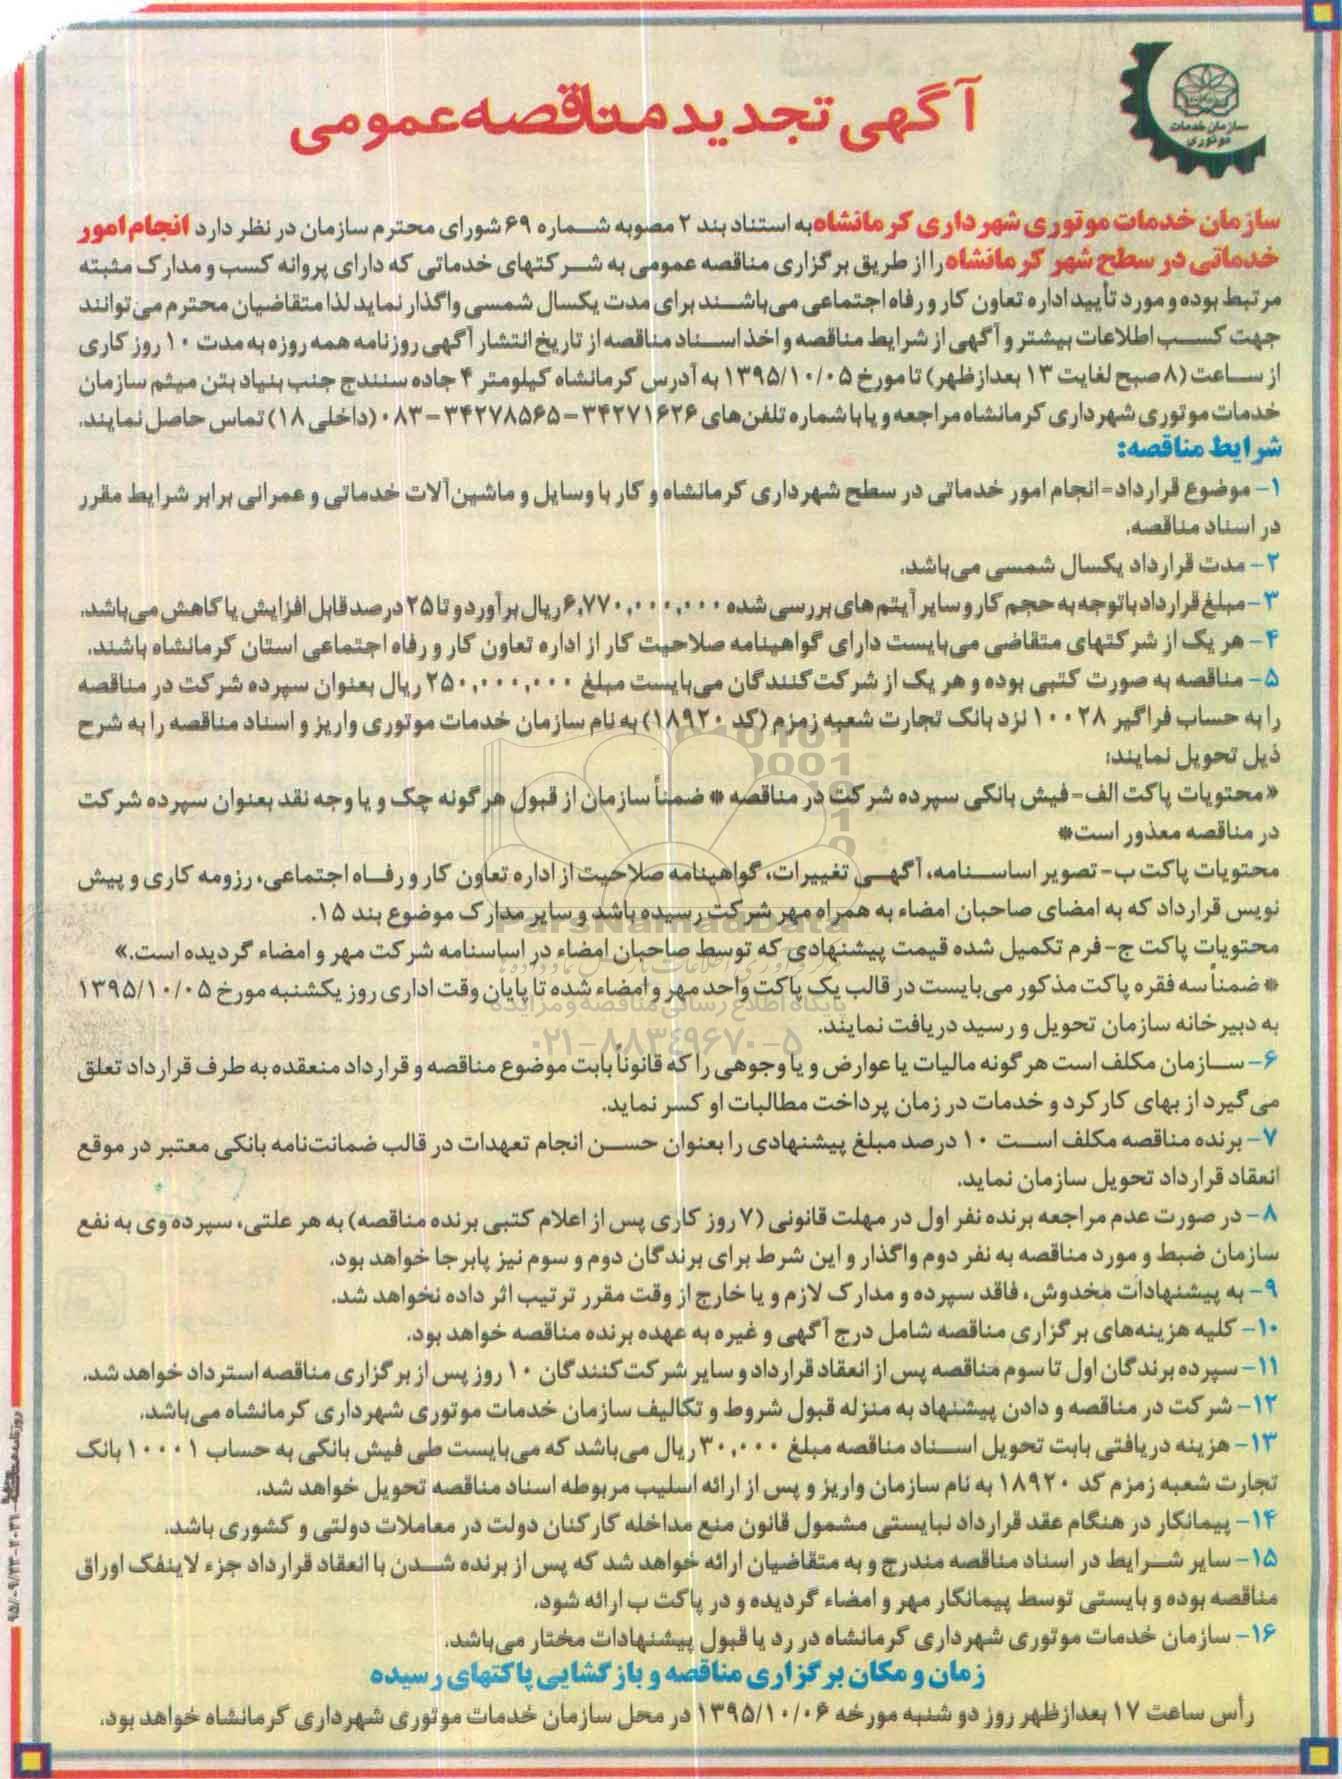 سازمان خدمات
موتوری
آگهی تجدید مناقصه عمومی
سازمان خدمات موتوری شهرداری کرمانشاه به استناد بند ۲ مصوبه شماره ۶۹ شورای محترم سازمان در نظر دارد انجام امور
خدماتی در سطح شهر کرمانشاه را از طریق برگزاری مناقصه عمومی به شرکتهای خدماتی که دارای پروانه کسب و مدارک مثبته
مرتبط بوده و مورد تأیید اداره تعاون کار و رفاه اجتماعی می‌باشند برای مدت یکسال شمسی واگذار نماید لذا متقاضیان محترم می‌توانند
جهت کسب اطلاعات بیشتر و آگهی از شرایط مناقصه و اخذ اسناد مناقصه از تاریخ انتشار آگهی روزنامه همه روزه به مدت ۱۰ روز کاری
از ساعت (۸ صبح لغایت ۱۳ بعدازظهر) تا مورخ ۱۳۹۵/۱۰/۰۵ به آدرس کرمانشاه کیلومتر ۴ جاده سنندج جنب بنیاد بتن میثم سازمان
خدمات موتوری شهرداری کرمانشاه مراجعه و یا با شماره تلفن‌های ۳۴۲۷۱۶۲۶-۳۴۲۷۸۵۶۵-۰۸۳ (داخلی ۱۸) تماس حاصل نمایند.
شرایط مناقصه:
۱- موضوع قرارداد=انجام امور خدماتی در سطح شهرداری کرمانشاه و کار با وسایل و ماشین‌آلات خدماتی و عمرانی برابر شرایط مقرر
در اسناد مناقصه.
۲- مدت قرارداد یکسال شمسی می‌باشد.
۳- مبلغ قرارداد باتوجه به حجم کار و سایر آیتم‌های بررسی شده ۶,۷۷۰,۰۰۰,۰۰۰ ریال برآورد و تا ۲۵ درصد قابل افزایش یا کاهش می‌باشد.
۴- هر یک از شرکتهای متقاضی می‌بایست دارای گواهینامه صلاحیت کار از اداره تعاون کار و رفاه اجتماعی استان کرمانشاه باشند.
۵- مناقصه به صورت کتبی بوده و هر یک از شرکت‌کنندگان می‌بایست مبلغ ۲۵۰,۰۰۰,۰۰۰ ریال بعنوان سپرده شرکت در مناقصه
را به حساب فراگیر ۱۰۰۲۸ نزد بانک تجارت شعبه زمزم (کد ۱۸۹۲۰) به نام سازمان خدمات موتوری واریز و اسناد مناقصه را به شرح
ذیل تحویل نمایند:
«محتویات پاکت الف- فیش بانکی سپرده شرکت در مناقصه * ضمناً سازمان از قبول هرگونه چک و یا وجه نقد بعنوان سپرده شرکت
در مناقصه معذور است*
محتویات پاکت ب- تصویر اساسنامه، آگهی تغییرات، گواهینامه صلاحیت از اداره تعاون کار و رفاه اجتماعی، رزومه کاری و پیش
نویس قرارداد که به امضای صاحبان امضاء به همراه مهر شرکت رسیده باشد و سایر مدارک موضوع بند ۱۵.
ParsNamadData
محتویات پاکت ج- فرم تکمیل شده قیمت پیشنهادی که توسط صاحبان امضاء در اساسنامه شرکت مهر و امضاء گردیده است.»
* ضمناً سه فقره پاکت مذکور می‌بایست در قالب یک پاکت واحد مهر و امضاء شده تا پایان وقت اداری روز یکشنبه مورخ ۱۳۹۵/۱۰/۰۵
پایگاه اطلاع رسانی مناقصه و مزایده
به دبیرخانه سازمان تحویل و رسید دریافت نمایند.
۰۲۱-۸۸۳۴۹۶۷۰-۵
۶- سازمان مکلف است هرگونه مالیات یا عوارض و یا وجوهی را که قانوناً بابت موضوع مناقصه و قرارداد منعقده به طرف قرارداد تعلق
می‌گیرد از بهای کارکرد و خدمات در زمان پرداخت مطالبات او کسر نماید.
۷- برنده مناقصه مکلف است ۱۰ درصد مبلغ پیشنهادی را بعنوان حسن انجام تعهدات در قالب ضمانت‌نامه بانکی معتبر در موقع
انعقاد قرارداد تحویل سازمان نماید.
۸- در صورت عدم مراجعه برنده نفر اول در مهلت قانونی (۷ روز کاری پس از اعلام کتبی برنده مناقصه) به هر علتی، سپرده وی به نفع
سازمان ضبط و مورد مناقصه به نفر دوم واگذار و این شرط برای برندگان دوم و سوم نیز پابرجا خواهد بود.
۹- به پیشنهادات مخدوش، فاقد سپرده و مدارک لازم و یا خارج از وقت مقرر ترتیب اثر داده نخواهد شد.
۱۰- کلیه هزینه‌های برگزاری مناقصه شامل درج آگهی و غیره به عهده برنده مناقصه خواهد بود.
۱۱- سپرده برندگان اول تا سوم مناقصه پس از انعقاد قرارداد و سایر شرکت‌کنندگان ۱۰ روز پس از برگزاری مناقصه استرداد خواهد شد.
۱۲- شرکت در مناقصه و دادن پیشنهاد به منزله قبول شروط و تکالیف سازمان خدمات موتوری شهرداری کرمانشاه می‌باشد.
۱۳- هزینه دریافتی بابت تحویل اسناد مناقصه مبلغ ۳۰,۰۰۰ ریال می‌باشد که می‌بایست طی فیش بانکی به حساب ۱۰۰۰۱ بانک
تجارت شعبه زمزم کد ۱۸۹۲۰ به نام سازمان واریز و پس از ارائه اسلیپ مربوطه اسناد مناقصه تحویل خواهد شد.
۱۴- پیمانکار در هنگام عقد قرارداد نبایستی مشمول قانون منع مداخله کارکنان دولت در معاملات دولتی و کشوری باشد.
۱۵- سایر شرایط در اسناد مناقصه مندرج و به متقاضیان ارائه خواهد شد که پس از برنده شدن با انعقاد قرارداد جزء لاینفک اوراق
مناقصه بوده و بایستی توسط پیمانکار مهر و امضاء گردیده و در پاکت ب ارائه شود.
۱۶- سازمان خدمات موتوری شهرداری کرمانشاه در رد یا قبول پیشنهادات مختار می‌باشد.
زمان و مکان برگزاری مناقصه و بازگشایی پاکتهای رسیده
رأس ساعت ۱۷ بعدازظهر روز دو شنبه مورخه ۱۳۹۵/۱۰/۰۶ در محل سازمان خدمات موتوری شهرداری کرمانشاه خواهد بود.